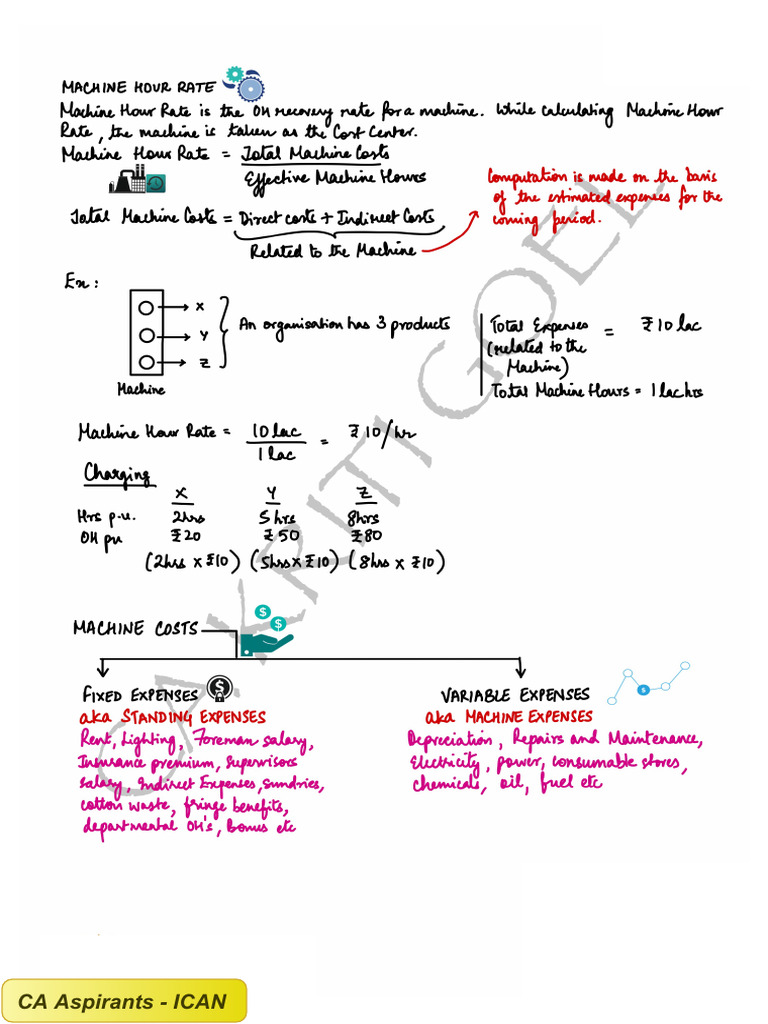 MACHINE HOUR RATE
Machine Hour Rate is the OH recovery rate for a machine. While calculating Machine Hour
Rate, the machine is taken as the Cost Center.
Machine Hour Rate = Total Machine Costs
Effective Machine Hours
Computation is made on the basis
of the estimated expenses for the
coming period.
Total Machine Costs = Direct costs + Indirect Costs
Related to the Machine
Ex:
X
Y
Z
Machine
An organisation has 3 products
Total Expenses = ₹10 lac
(related to the
Machine)
Total Machine Hours = 1 lac hrs
Machine Hour Rate = 10 lac = ₹10/hr
1 lac
Charging
X Y Z
Hrs p.u. 2hrs 5hrs 8hrs
OH pu ₹20 ₹50 ₹80
(2hrs x ₹10) (5hrs x ₹10) (8hrs x ₹10)
MACHINE COSTS
FIXED EXPENSES
aka STANDING EXPENSES
Rent, Lighting, Foreman salary,
Insurance premium, Supervisors
salary, Indirect Expenses, sundries,
cotton waste, fringe benefits,
departmental OH's, Bonus etc
VARIABLE EXPENSES
aka MACHINE EXPENSES
Depreciation, Repairs and Maintenance,
Electricity, power, consumable stores,
chemicals, oil, fuel etc
CA KRITI GOEL
CA Aspirants - ICAN